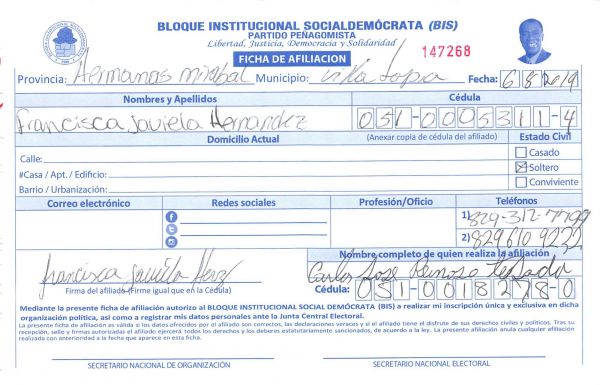 BLOQUE INSTITUCIONAL SOCIALDEMÓCRATA (BIS)
PARTIDO PEÑAGOMISTA
Libertad, Justicia, Democracia y Solidaridad
FICHA DE AFILIACION
147268
Provincia: Hermanas mirabal Municipio: Villa Tapia Fecha: 6/8/2019
Nombres y Apellidos Cédula
Francisca Javiela Hernandez 051-0005311-4
Domicilio Actual (Anexar copia de cédula del afiliado) Estado Civil
Calle: Casado
#Casa / Apt. / Edificio: Soltero
Barrio / Urbanización: Conviviente
Correo electrónico Redes sociales Profesión/Oficio Teléfonos
1) 829-312-7799
2) 829 610 9232
Nombre completo de quien realiza la afiliación
francisca Javiela Herz Carlos Jose Reinoso
Firma del afiliado (Firme igual que en la Cédula) Cédula: 051-0018278-0
Mediante la presente ficha de afiliación autorizo al BLOQUE INSTITUCIONAL SOCIAL DEMÓCRATA (BIS) a realizar mi inscripción única y exclusiva en dicha
organización política, así como a registrar mis datos personales ante la Junta Central Electoral.
La presente ficha de afiliación es válida si los datos ofrecidos por el afiliado son correctos, las declaraciones veraces y si el afiliado tiene el disfrute de sus derechos civiles y políticos. Tras su
recepción, sello y firmas autorizadas el afiliado ejercerá todos los derechos y los deberes estatutariamente sancionados, de acuerdo a la ley. La presente afiliación anula cualquier afiliación
realizada con anterioridad a la fecha que aparece en esta ficha.
SECRETARIO NACIONAL DE ORGANIZACIÓN SECRETARIO NACIONAL ELECTORAL